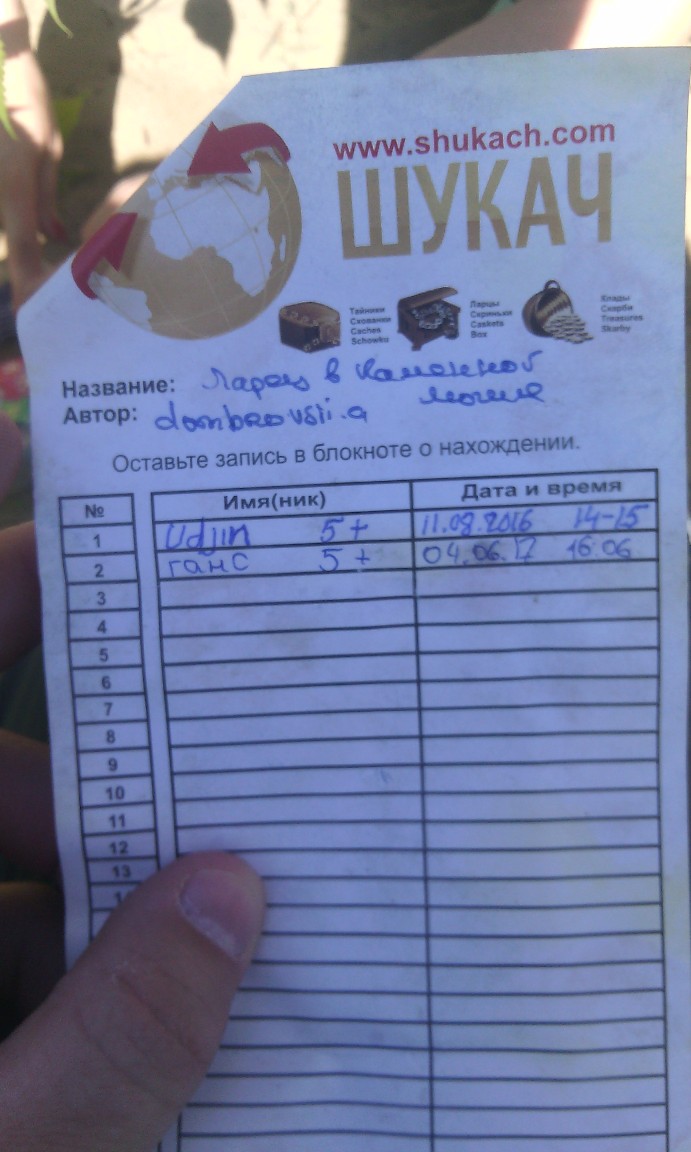 www.shukach.com
ШУКАЧ
Тайники
Схованки
Caches
Schowku
Ларцы
Скриньки
Caskets
Box
Клады
Скарби
Treasures
Skarby
Название: Ларец в Каменной
Могиле
Автор:
Оставьте запись в блокноте о нахождении.
№ Имя(ник) Дата и время
1 Udjin 5+ 11.08.2016 14-15
2 ганс 5+ 04.06.17 16 06
3
4
5
6
7
8
9
10
11
12
13